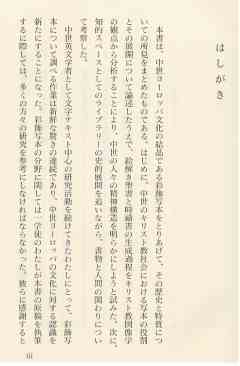 はしがき
本書は、中世ヨーロッパ文化の結晶である彩飾写本をとりあげて、その歴史と特質につ
いての所見をまとめたものである。はじめに、中世のキリスト教社会における写本の役割
とその展開について論述したうえで、絵解き聖書と時禱書の生成過程をキリスト教図像学
の観点から分析することにより、中世の人々の精神構造を明らかにしようと試みた。次に、
知的スペースとしてのライブラリーの史的展開を追いながら、書物と人間の関わりについ
て考察した。
中世英文学者として文字テキスト中心の研究活動を続けてきたわたしにとって、彩飾写
本について調べる作業は新鮮な驚きの連続であり、中世ヨーロッパの文化に対する認識を
新たにすることになった。彩飾写本の分野に関しては一学徒のわたしが本書の原稿を執筆
するに際しては、多くの方々の研究を参考にしなければならなかった。彼らに感謝すると
iii